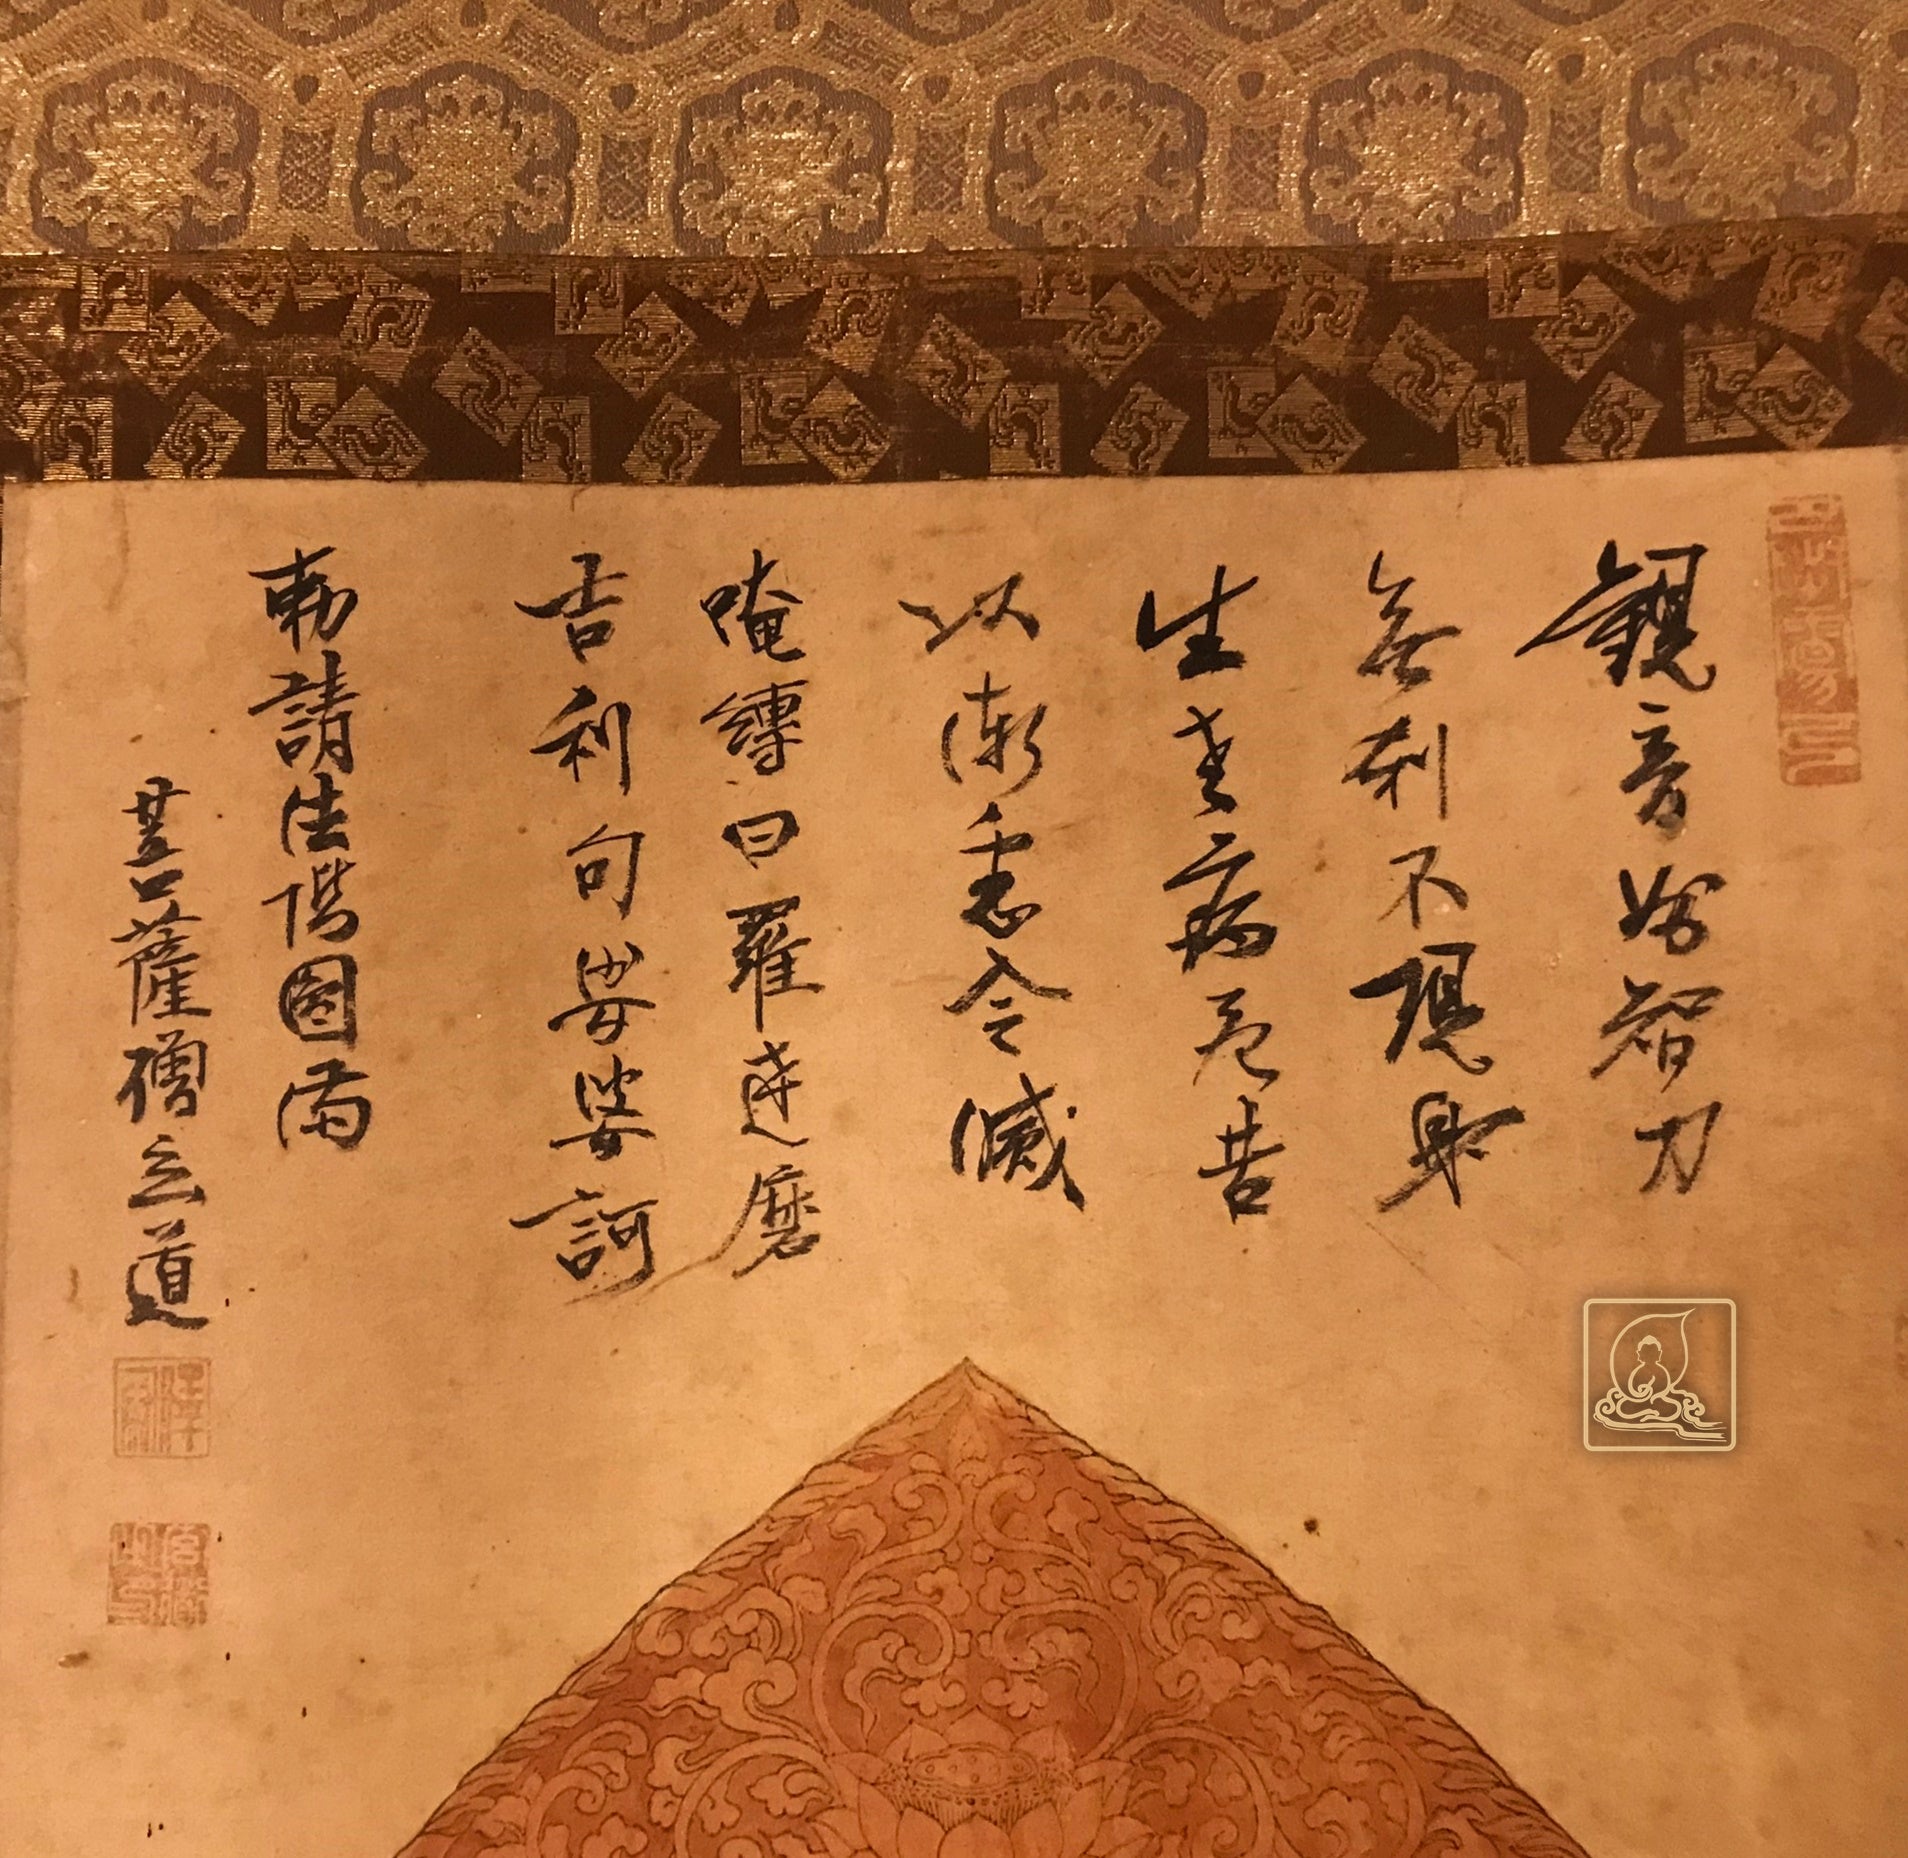 觀音妙智力
無刹不現身
生老病死苦
以漸悉令滅
唵縛曰羅達磨
吉利句娑婆訶
勅請法階圓滿
菩薩僧立道